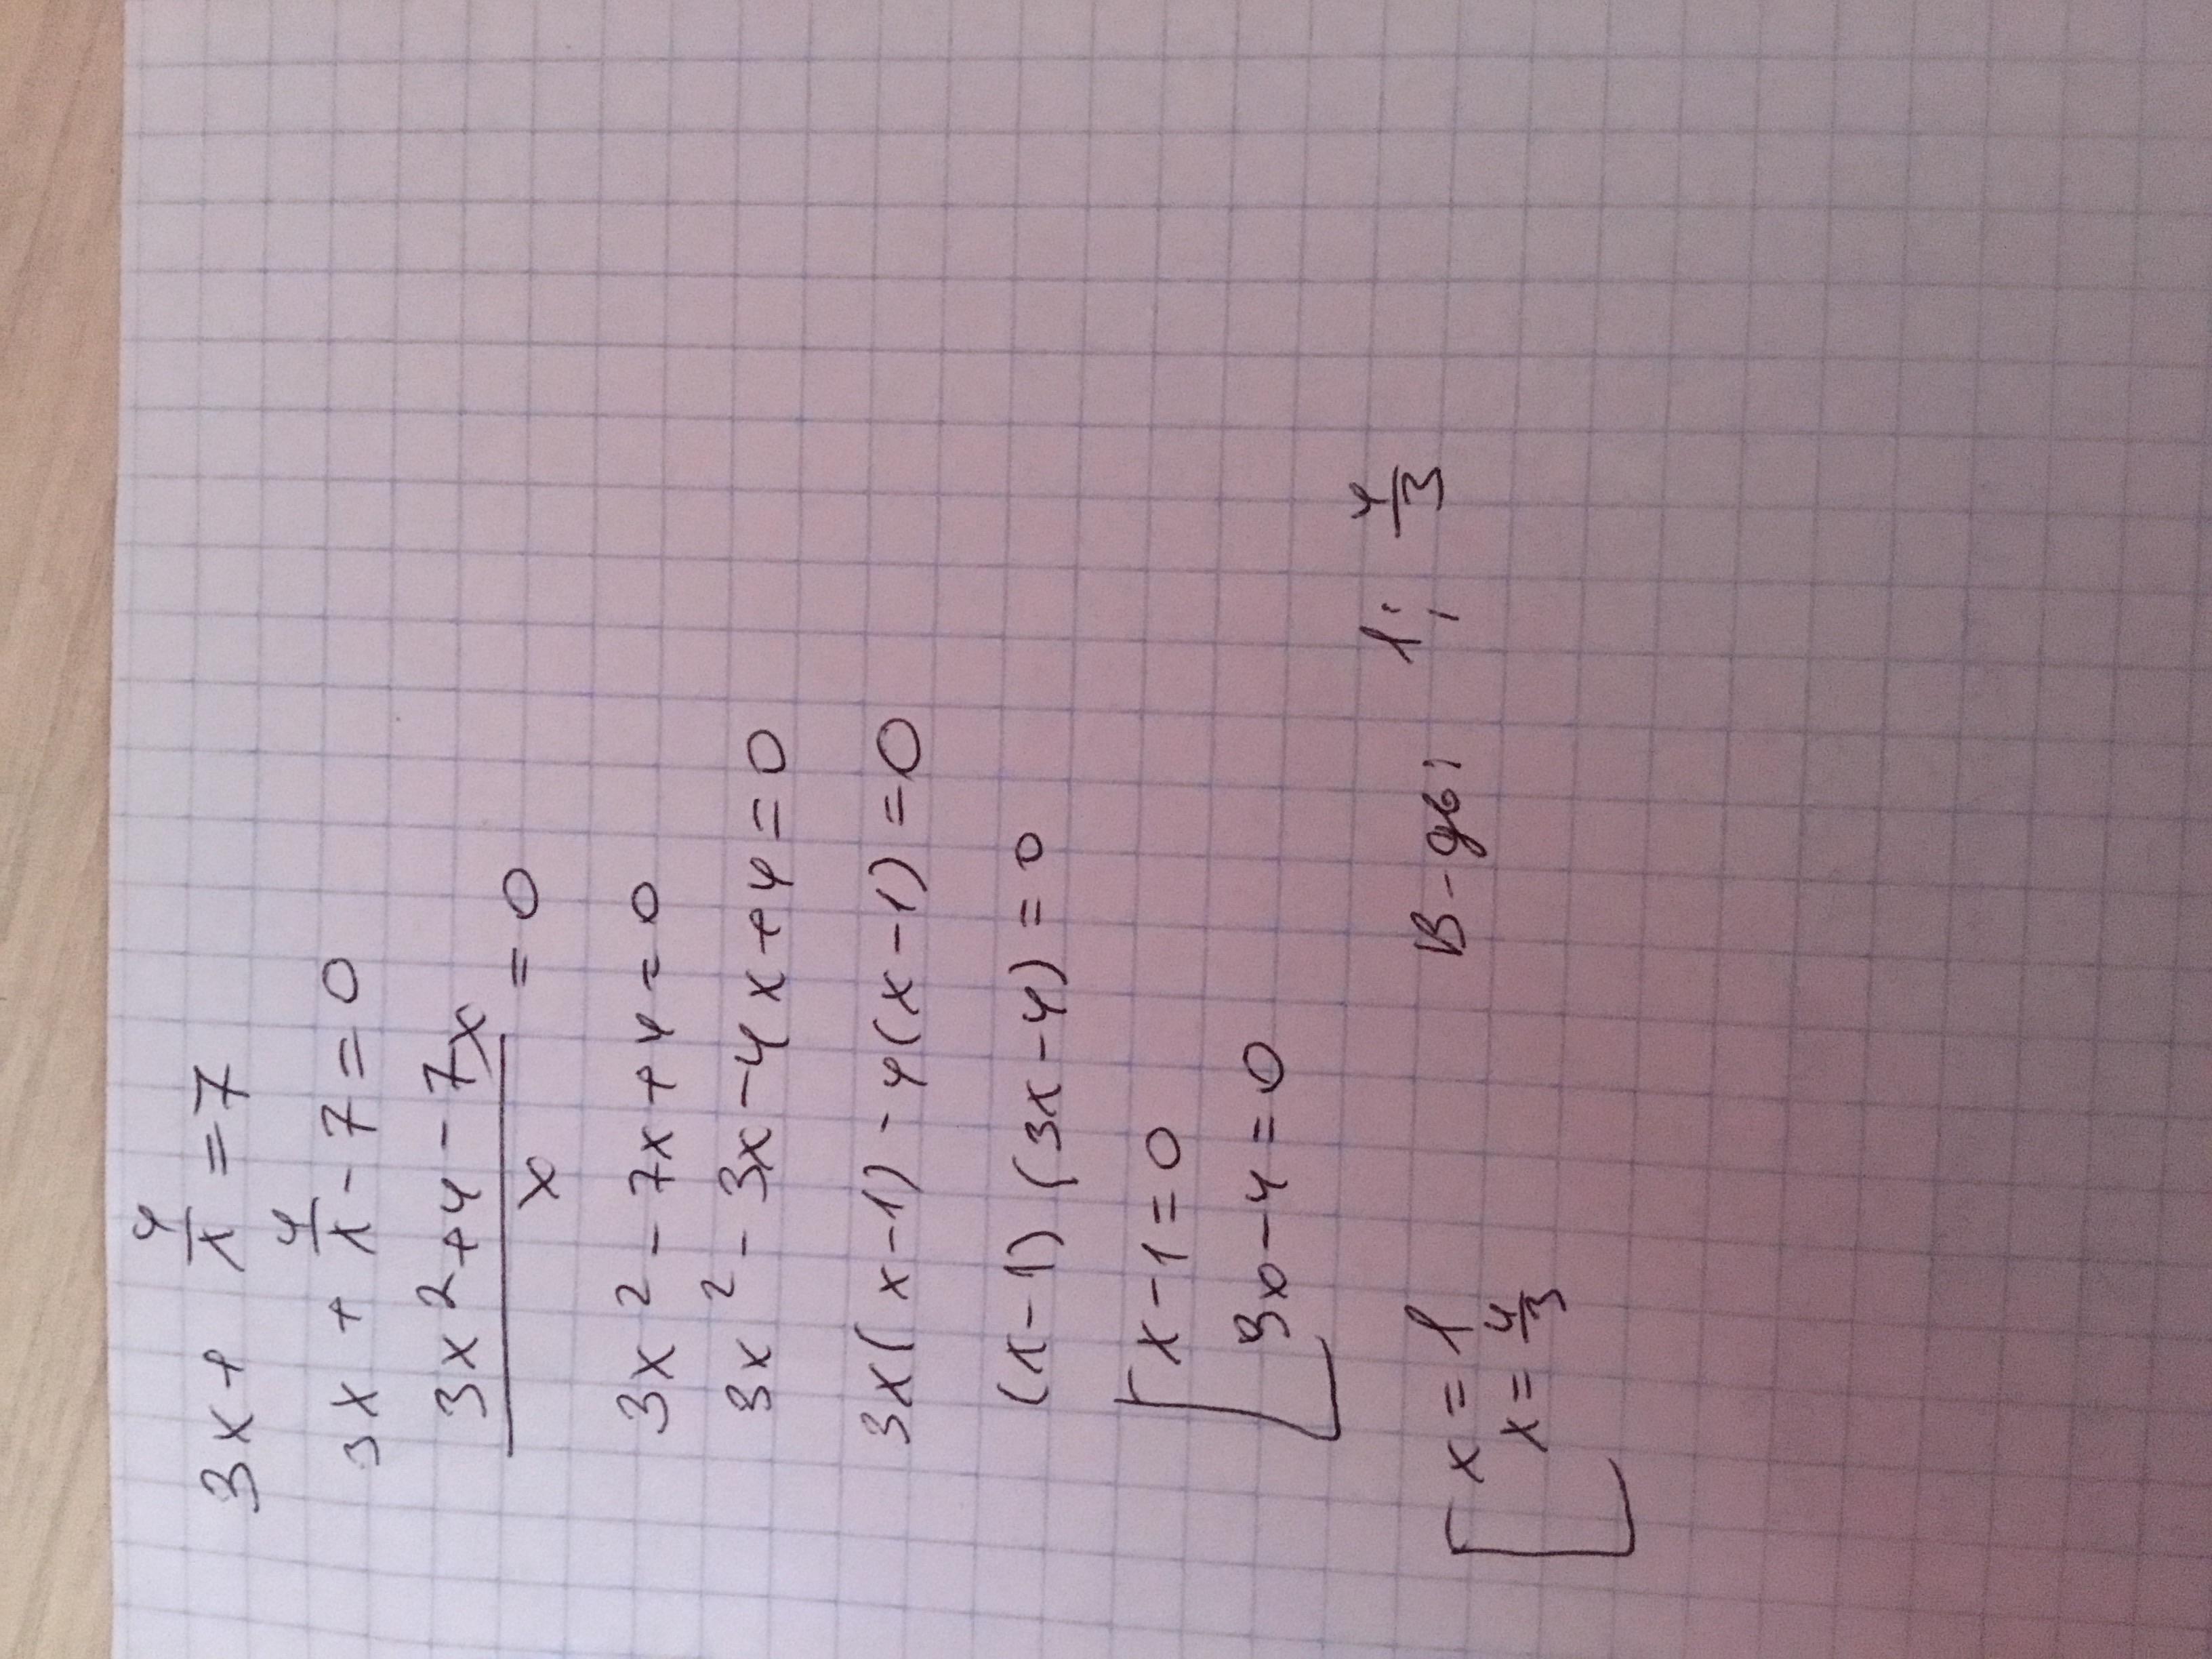 3x + 4/x = 7
3x + 4/x - 7 = 0
(3x² + 4 - 7x)/x = 0
3x² - 7x + 4 = 0
3x² - 3x - 4x + 4 = 0
3x(x-1) - 4(x-1) = 0
(x-1)(3x-4) = 0
[x-1=0
3x-4=0
[x=1
x=4/3
В-дь: 1; 4/3